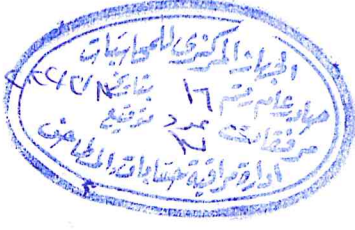 الجهاز المركزى للمحاسبات
صادر عام رقم ١٦ بتاريخ
مرفقات عدد توقيع
ادارة مراقبة حسابات المطاحن